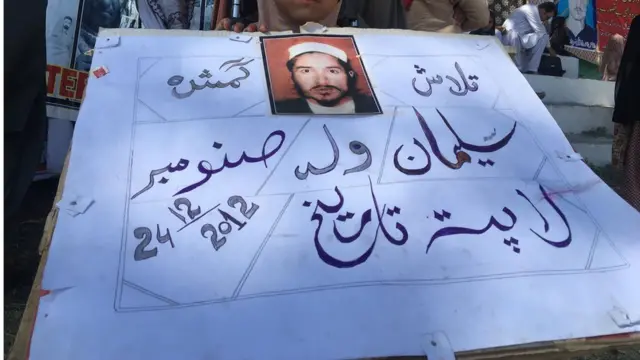 تلاش گمشدہ
سلیمان ولد صنومبر
لاپتہ تاریخ 24/12/2012